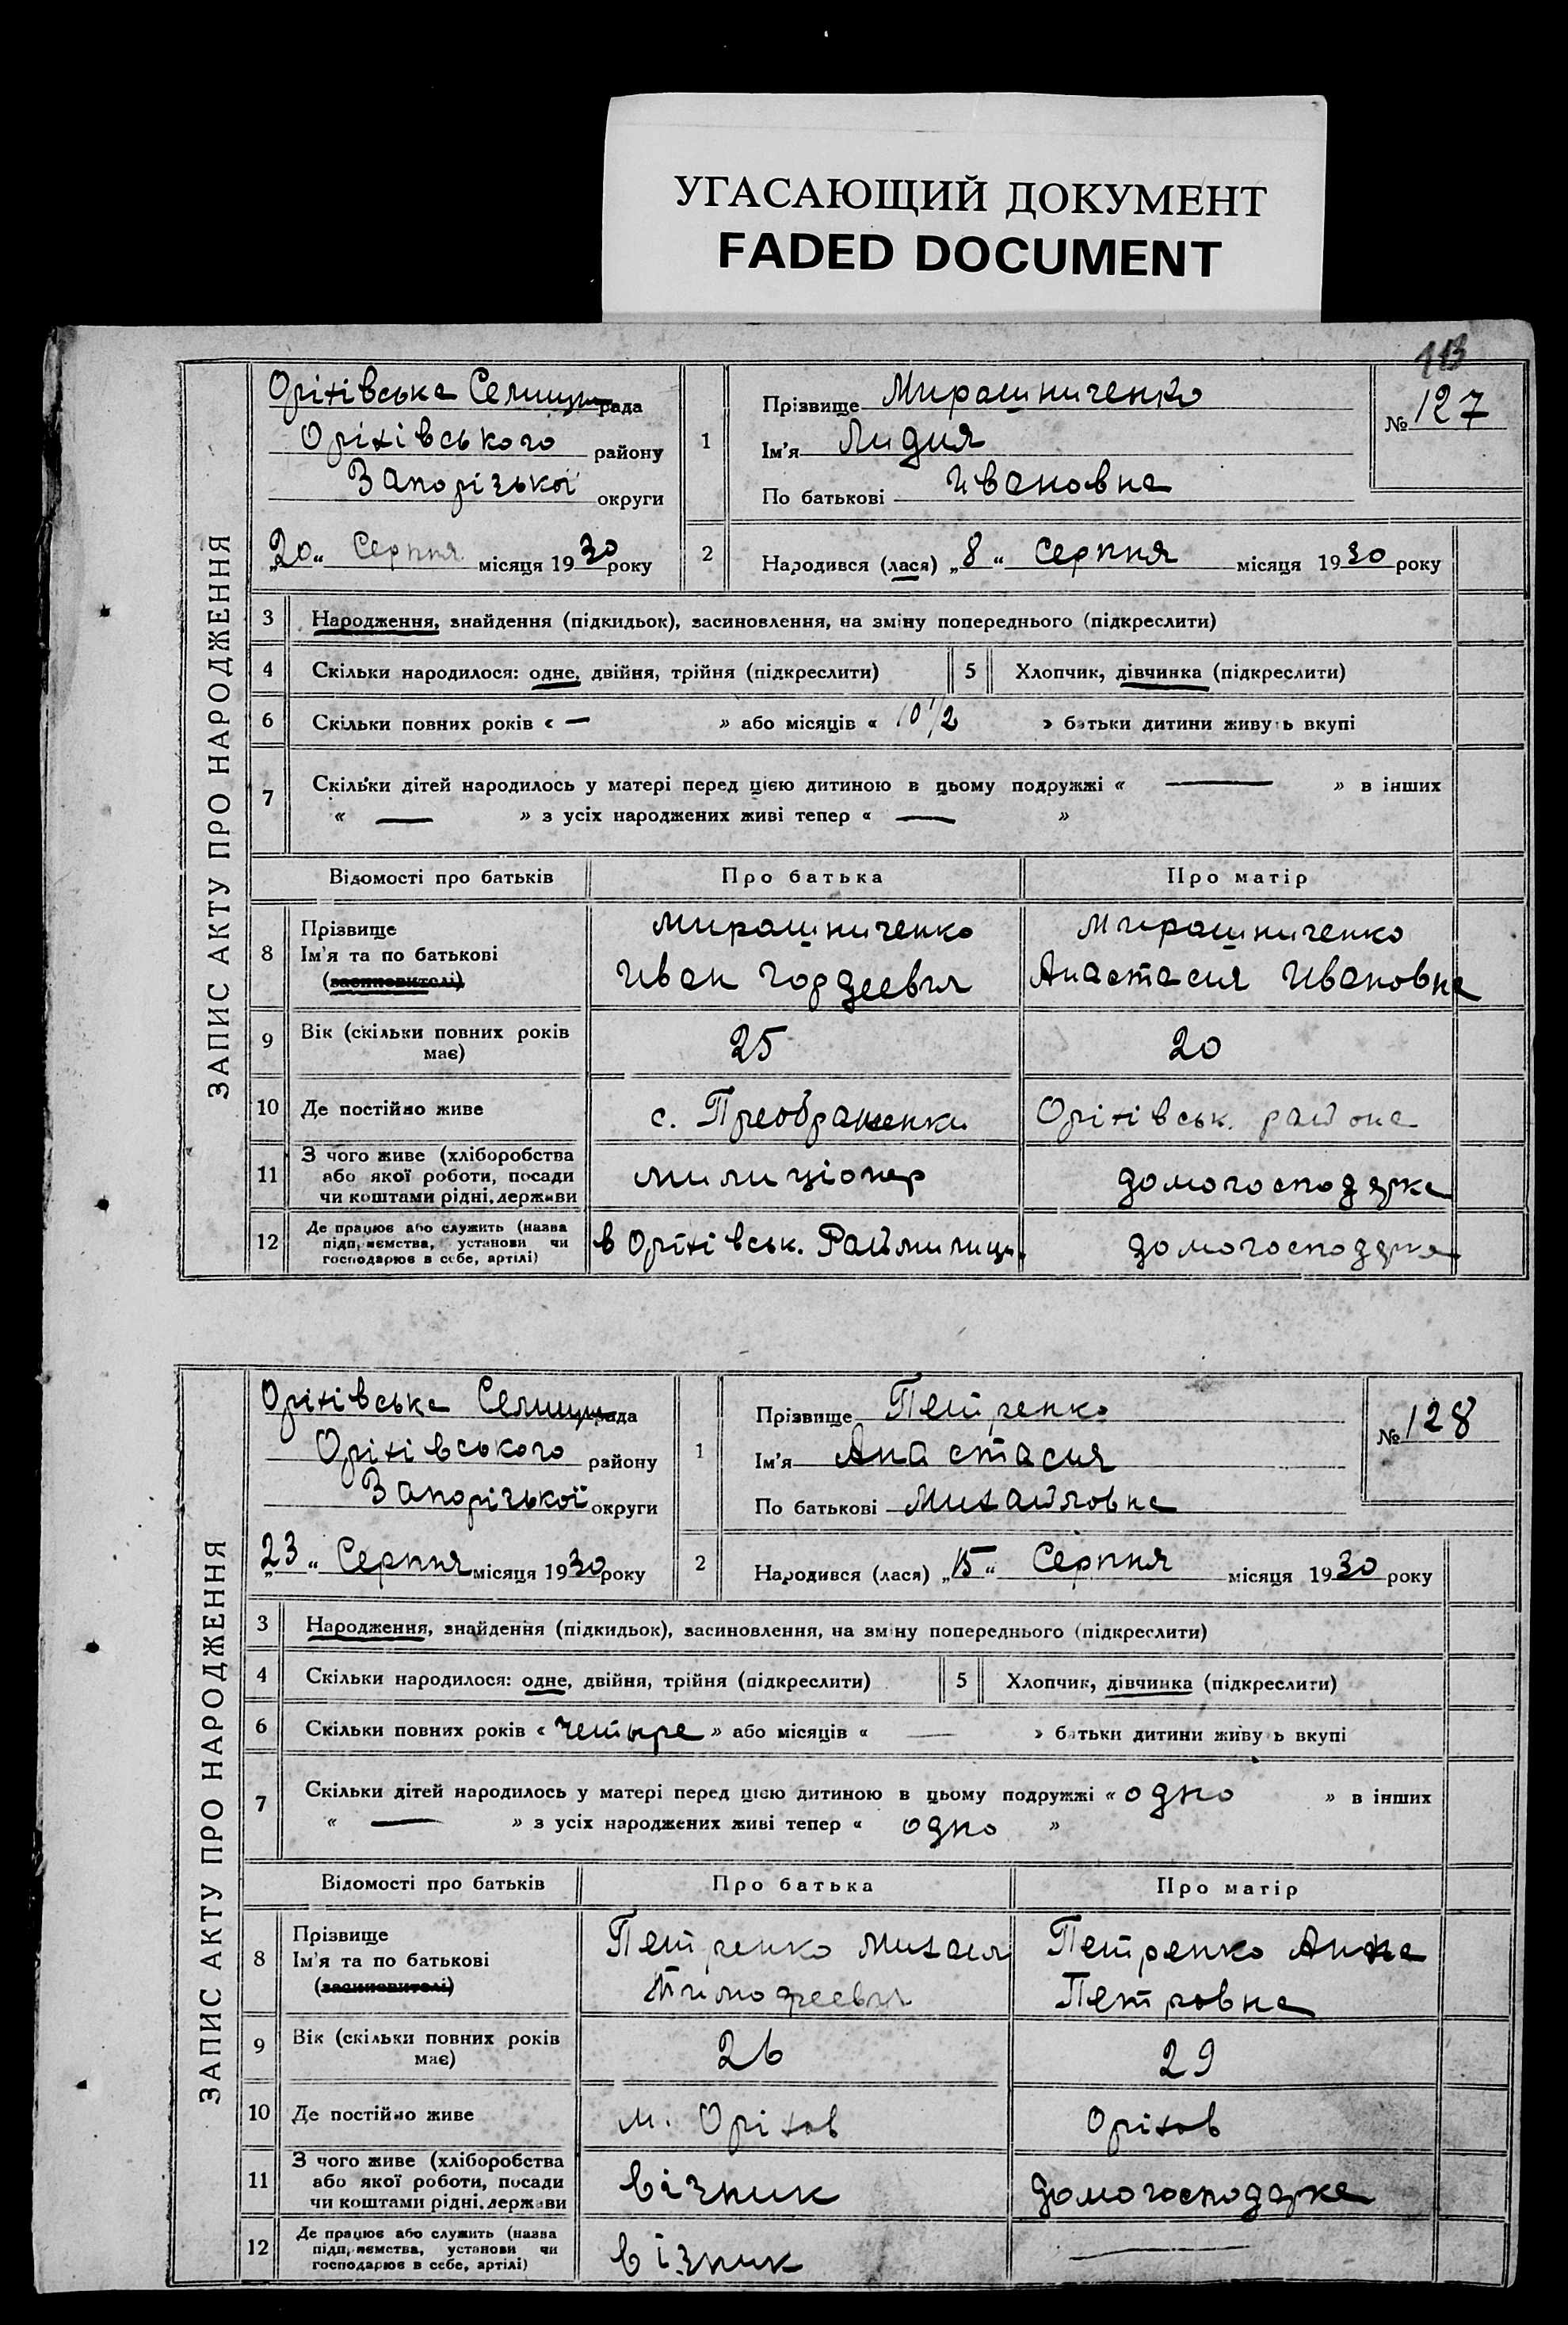 УГАСАЮЩИЙ ДОКУМЕНТ
FADED DOCUMENT
113
ЗАПИС АКТУ ПРО НАРОДЖЕННЯ
Оріхівська Селищн рада
Оріхівського району
Запорізької округи
„20“ Серпня місяця 1930 року
1
Прізвище Мирашниченко
Ім'я Лидия
По батькові Ивановна
№ 127
2
Народився (лася) „8“ Серпня місяця 1930 року
3 Народження, знайдення (підкидьок), засиновлення, на зміну попереднього (підкреслити)
4 Скільки народилося: одне, двійня, трійня (підкреслити) 5 Хлопчик, дівчинка (підкреслити)
6 Скільки повних років « — » або місяців « 10 1/2 » батьки дитини живуть вкупі
7 Скільки дітей народилось у матері перед цією дитиною в цьому подружжі « — » в інших
« — » з усіх народжених живі тепер « — »
Відомості про батьків Про батька Про матір
8 Прізвище
Ім'я та по батькові
(засиновителі)
Мирашниченко
Иван Гордеевич
Мирашниченко
Анастасия Ивановна
9 Вік (скільки повних років
має)
25 20
10 Де постійно живе с. Преображенка Оріхівськ. района
11 З чого живе (хліборобства
або якої роботи, посади
чи коштами рідні, держави
милиціонер домогосподарка
12 Де працює або служить (назва
підприємства, установи чи
господарює в себе, артілі)
в Оріхівськ. Раймилиц. домогосподарка
ЗАПИС АКТУ ПРО НАРОДЖЕННЯ
Оріхівська Селищн рада
Оріхівського району
Запорізької округи
„23“ Серпня місяця 1930 року
1
Прізвище Петренко
Ім'я Анастасия
По батькові Михайловна
№ 128
2
Народився (лася) „15“ Серпня місяця 1930 року
3 Народження, знайдення (підкидьок), засиновлення, на зміну попереднього (підкреслити)
4 Скільки народилося: одне, двійня, трійня (підкреслити) 5 Хлопчик, дівчинка (підкреслити)
6 Скільки повних років « четыре » або місяців « — » батьки дитини живуть вкупі
7 Скільки дітей народилось у матері перед цією дитиною в цьому подружжі « одно » в інших
« — » з усіх народжених живі тепер « одно »
Відомості про батьків Про батька Про матір
8 Прізвище
Ім'я та по батькові
(засиновителі)
Петренко Михаил
Тимофеевич
Петренко Анна
Петровна
9 Вік (скільки повних років
має)
26 29
10 Де постійно живе м. Оріхов Оріхов
11 З чого живе (хліборобства
або якої роботи, посади
чи коштами рідні, держави
візник домогосподарка
12 Де працює або служить (назва
підприємства, установи чи
господарює в себе, артілі)
візник —